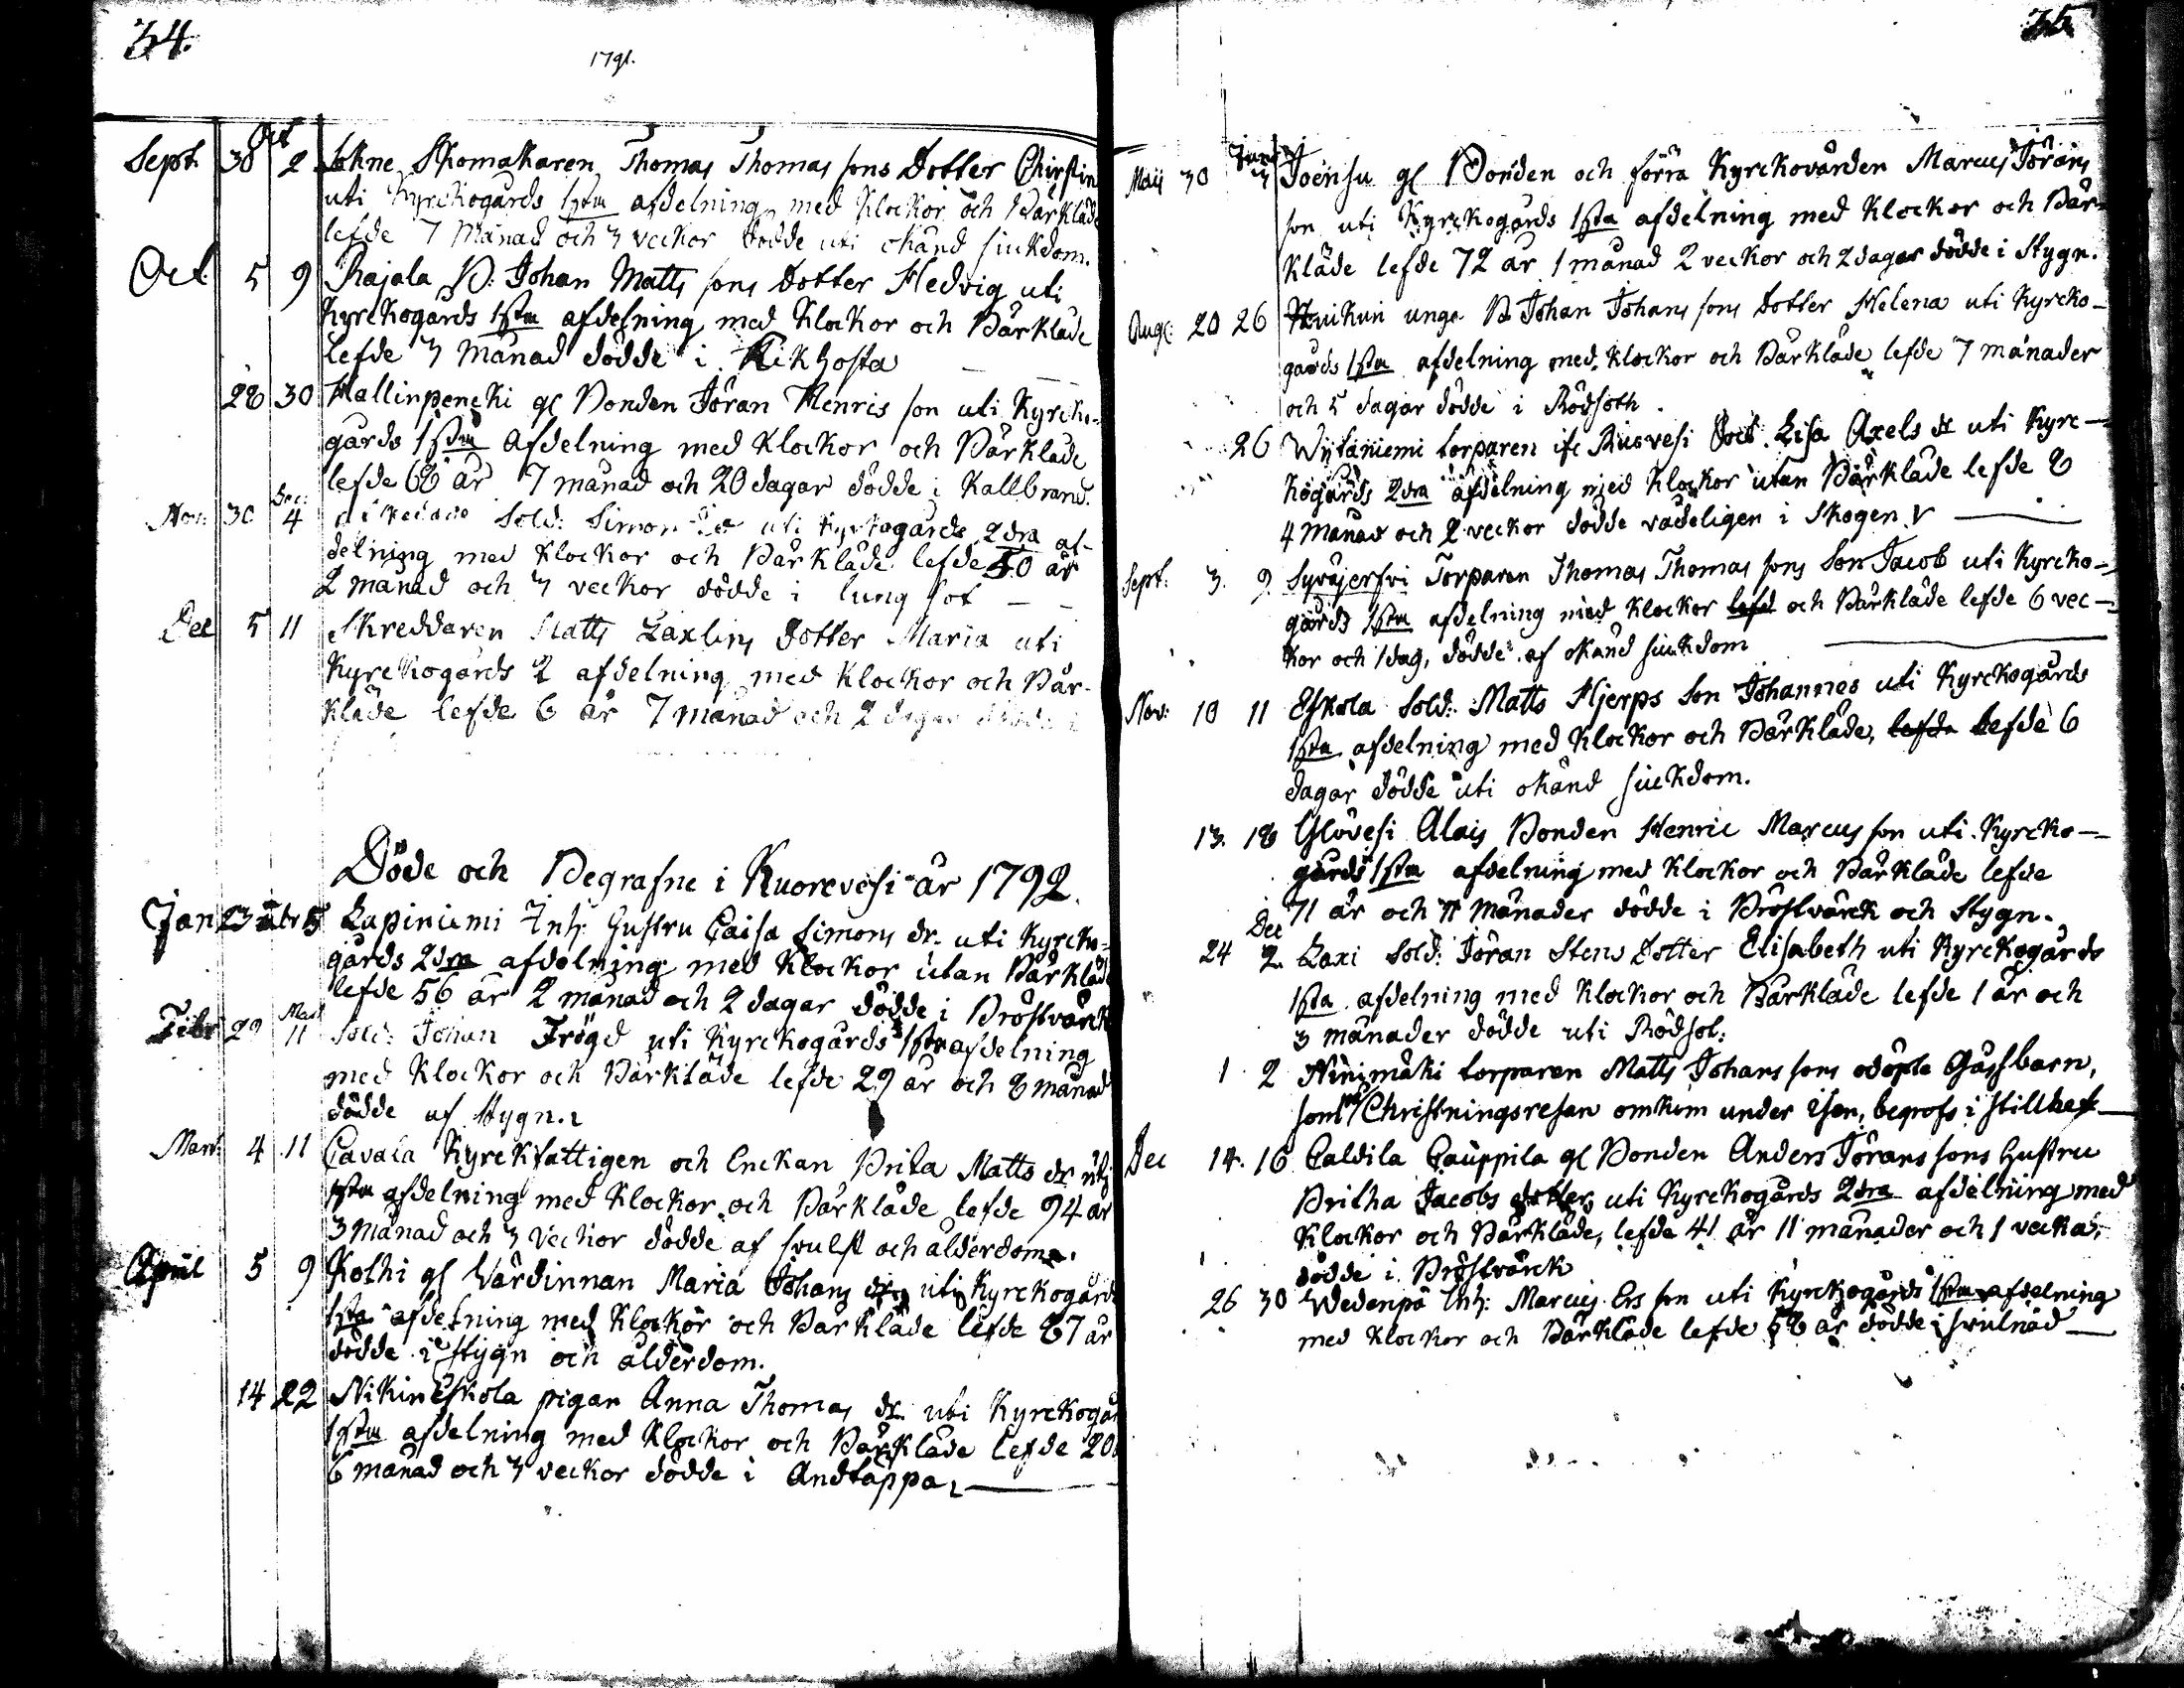 34.
1791.
Sept. 30 Oct 2 Jokne Skomakaren Thomas Thomas sons Dotter Chirstin
uti Kyrckogårds 1sta afdelning med Klockor och Bårkläde
lefde 7 Månad och 3 veckor dödde uti okänd siukdom.
Oct 5 9 Rajala B: Johan Matts sons Dotter Hedvig uti
Kyrckogårds 1sta afdelning med Klockor och Bårkläde
lefde 3 månad dödde i Kikhosta
28 30 Hallinpencki gl Bonden Jöran Henris son uti Kyrcko-
gårds 1sta Afdelning med Klockor och Bårkläde
lefde 68 år 7 månad och 20 dagar dödde i Kallbrand.
Nov: 30 Dec: 4 Sold: Simon uti Kyrkogårds 2dra af-
delning med Klockor och Bårkläde lefde 50 år
2 månad och 3 veckor dödde i lung sot
Dec 5 11 Skreddaren Matts Laxlins Dotter Maria uti
Kyrckogårds 2 afdelning med Klockor och Bår-
kläde lefde 6 år 7 månad och 2 dagar dödde i
Döde och Begrafne i Kuorevesi år 1792.
Jan 23 Febr 5 Lapiniemi Inh: Hustru Caisa Simons dr. uti Kyrcko-
gårds 2dra afdelning med Klockor utan Bårkläde
lefde 56 år 2 månad och 2 dagar dödde i Bröstvärck
Febr 29 Mart 11 Sold: Johan Frögd uti Kyrckogårds 1sta afdelning
med Klockor och Bårkläde lefde 29 år och 8 månad
dödde af Stygn.
Mart: 4 11 Cavala Kyrckfattigen och Enckan Brita Matts dr uti
1sta afdelning med Klockor och Bårkläde lefde 94 år
3 månad och 3 veckor dödde af svulst och ålderdom.
April 5 9 Kothi gl Värdinnan Maria Johans dr uti Kyrckogårds
1sta afdelning med Klockor och Bårkläde lefde 87 år
dödde i stygn och ålderdom.
14 22 Nikin Eskola pigan Anna Thomas dr. uti Kyrckogår
1sta afdelning med Klockor och Bårkläde lefde 20
6 månad och 3 veckor dödde i Andtäppa
35
Maii 30 Junii 3 Joensu gl Bonden och förra Kyrckovärden Marcus Jörans
son uti Kyrckogårds 1sta afdelning med Klockor och Bår-
kläde lefde 72 år 1 månad 2 veckor och 2 dagar dödde i Stygn.
Aug: 20 26 unge B Johan Johans sons Dotter Helena uti Kyrcko-
gårds 1sta afdelning med Klockor och Bårkläde lefde 7 månader
och 5 dagar dödde i Rödsoth.
26 Wytaniemi torparen ifr Ruovesi Lisa Axels dr uti Kyrc-
kogårds 2dra afdelning med Klockor utan Bårkläde lefde 8
4 månad och 2 veckor dödde vådeligen i Skogen.
Sept: 3. 9. Syväjerfvi Torparen Thomas Thomas sons Son Jacob uti Kyrcko-
gårds 1sta afdelning med Klockor lefd och Bårkläde lefde 6 vec-
kor och 1 dag, dödde af okänd siukdom
Nov: 10 11 Eskola Sold: Matts Hjerps Son Johannes uti Kyrckogårds
1sta afdelning med Klockor och Bårkläde, lefde lefde 6
dagar dödde uti okänd siukdom.
13. 18 Ylövesi Alais Bonden Henric Marcus son uti Kyrcko-
gårds 1sta afdelning med Klockor och Bårkläde lefde
71 år och månader dödde i Bröstvärck och Stygn.
24 Dec 2. Laxi Sold: Jöran Stens Dotter Elisabeth uti Kyrckogårds
1sta afdelning med Klockor och Bårkläde lefde 1 år och
3 månader dödde uti Rödsot:
1 2 Ninimäki torparen Matts Johans sons odöpte Gåssbarn,
som på Christningsresan omkom under isen, begrofs i stillhet
Dec 14. 16 Caldila Cauppila gl Bonden Anders Jörans sons Hustru
Britha Jacobs dotter uti Kyrckogårds 2dra afdelning med
Klockor och Bårkläde, lefde 41 år 11 månader och 1 vecka,
dödde i Bröstvärck
26 30 Wedenpä Inh: Marcus Ers son uti Kyrckogårds 1sta afdelning
med Klockor och Bårkläde lefde 58 år dödde i